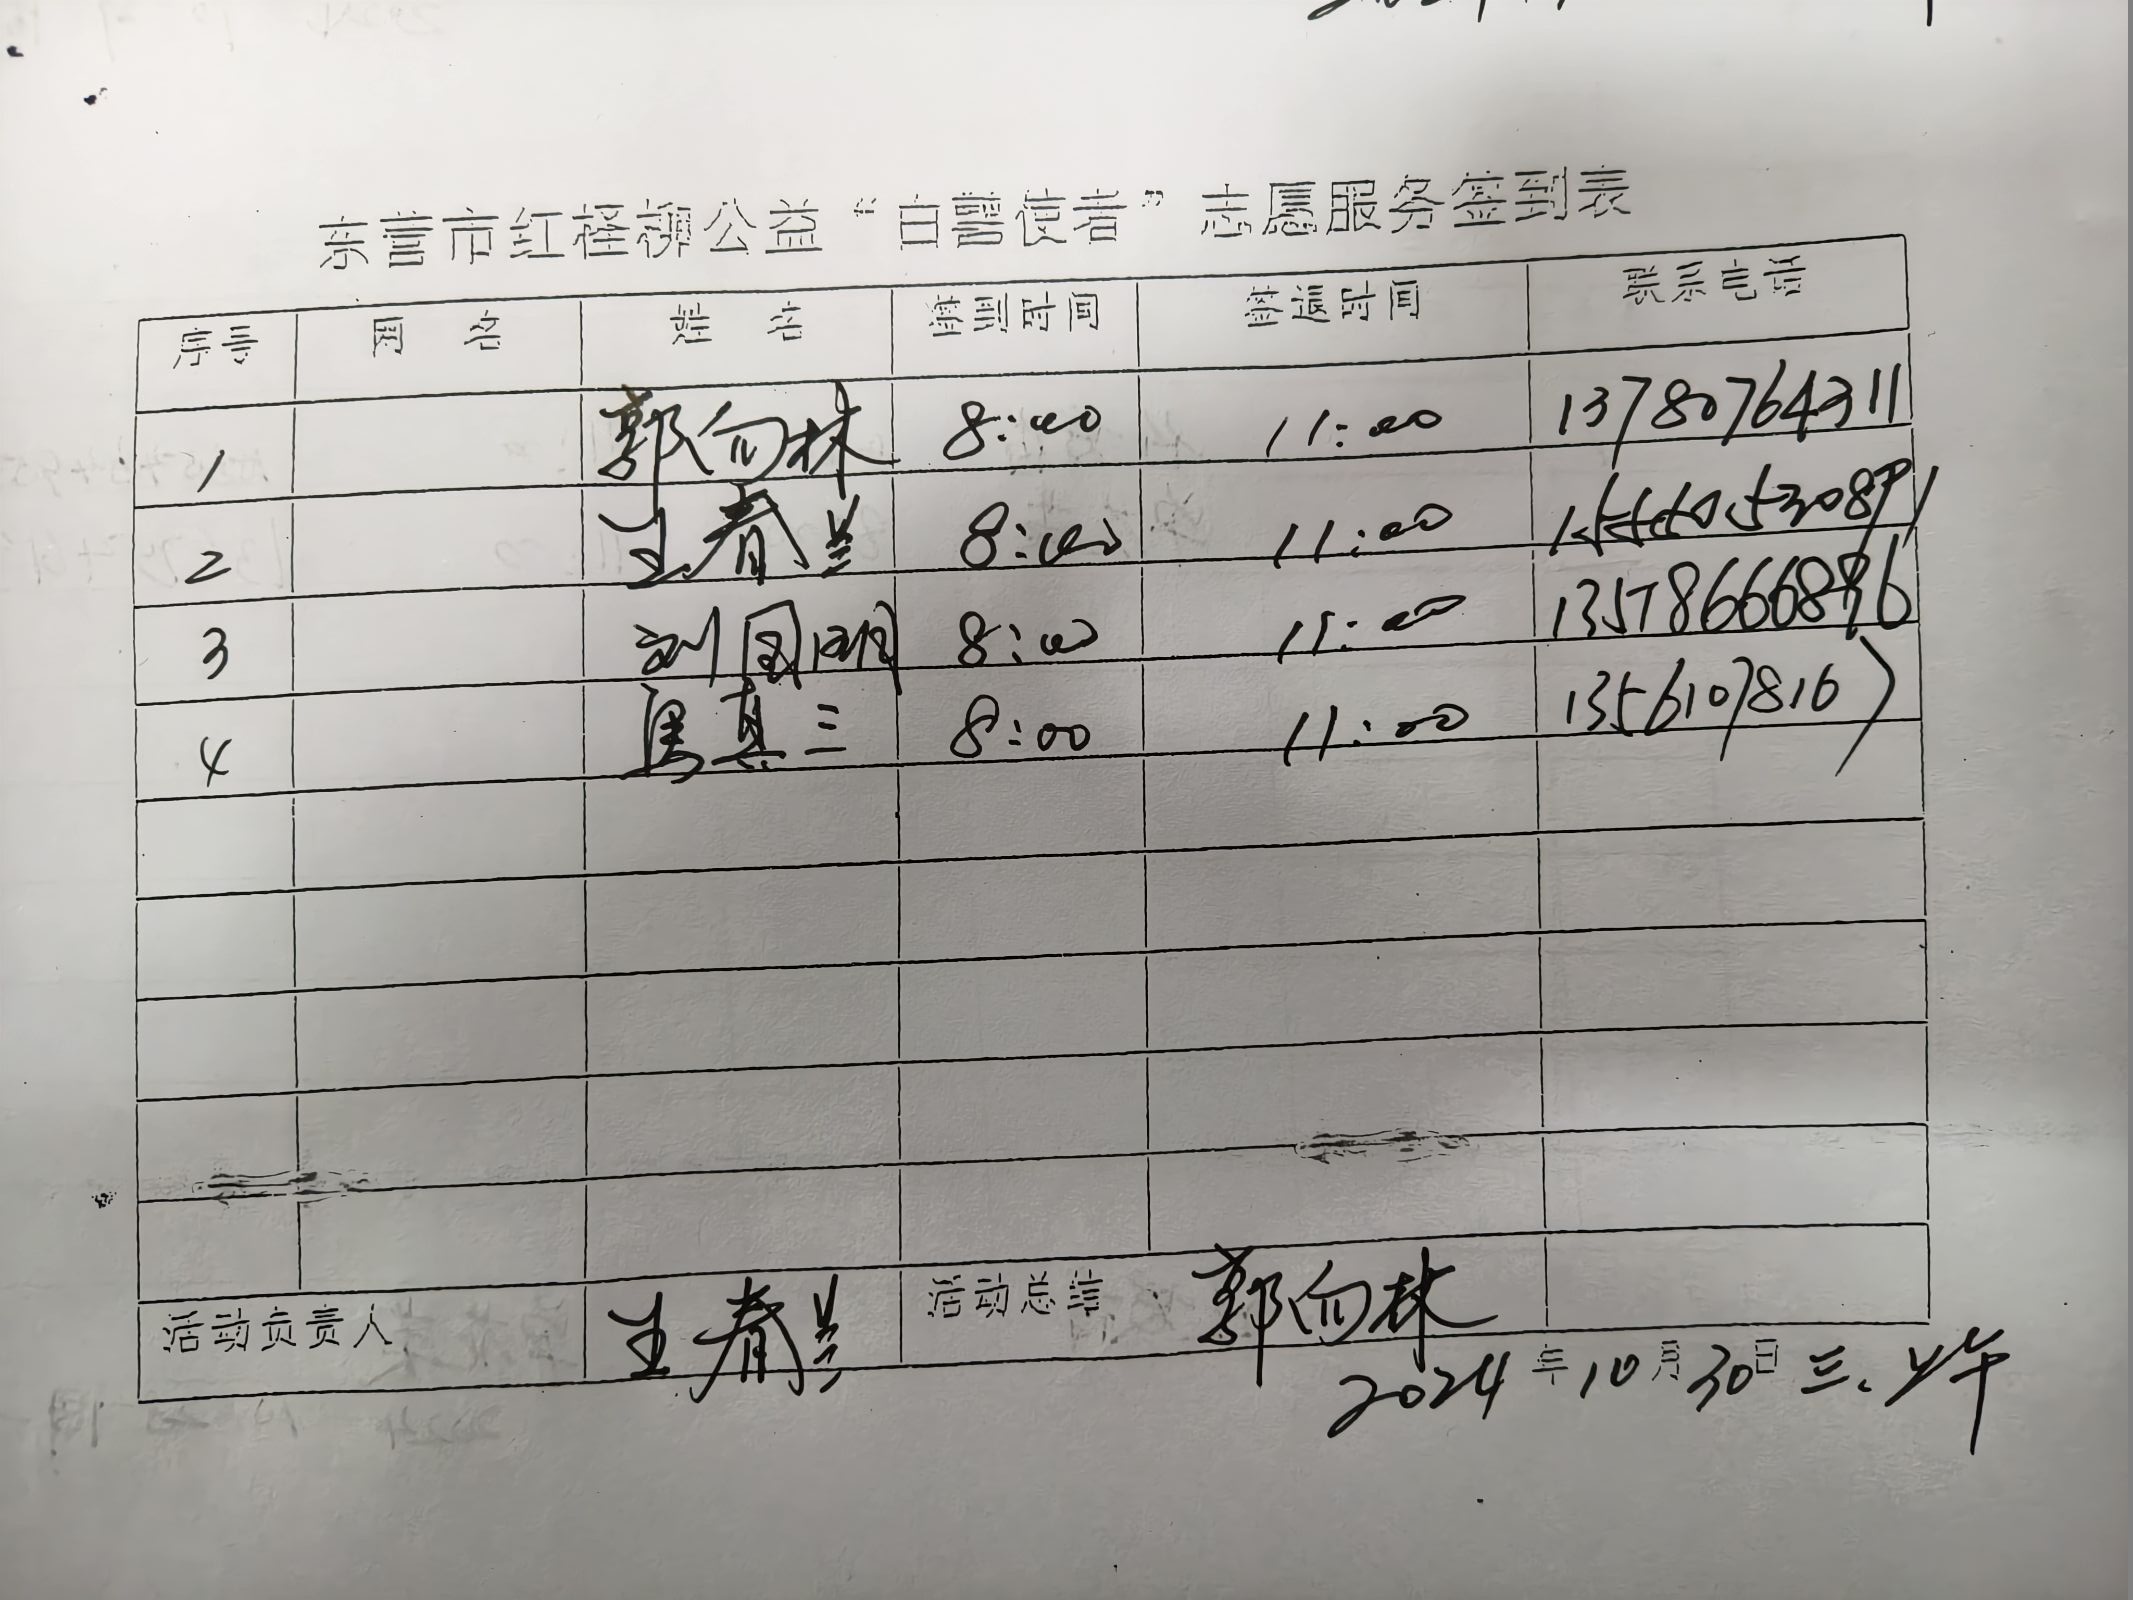 东营市红柽柳公益“白鹭使者”志愿服务签到表
序号 网名 姓名 签到时间 签退时间 联系电话
1 郭向林 8:00 11:00 13780764311
2 王春兰 8:00 11:00
3 8:00 11:00
4 8:00 11:00 13561078167
活动负责人 王春兰 活动总结 郭向林
2024年10月30日 三.上午